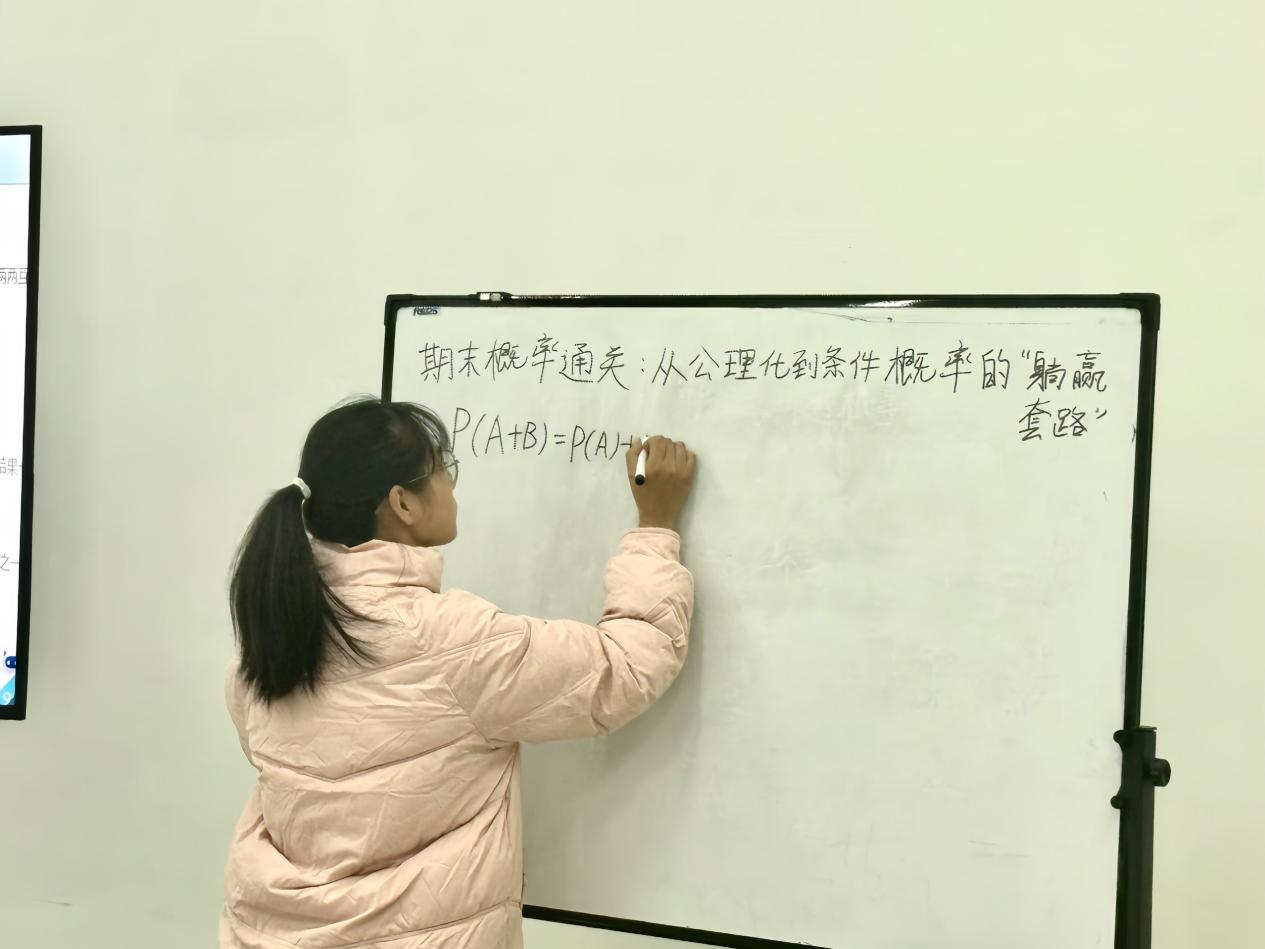 两两互
结果
之一
9
期末概率通关:从公理化到条件概率的“躺赢
套路”
P(A+B)=P(A)+